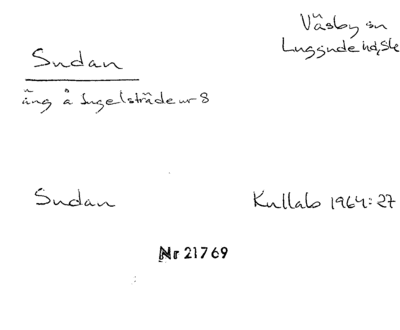 Väsby sn
Luggude hd, Sk
Sudan
äng å Ingelsträde nr 8
Sudan
Kullabo 1964:27
Nr 21769